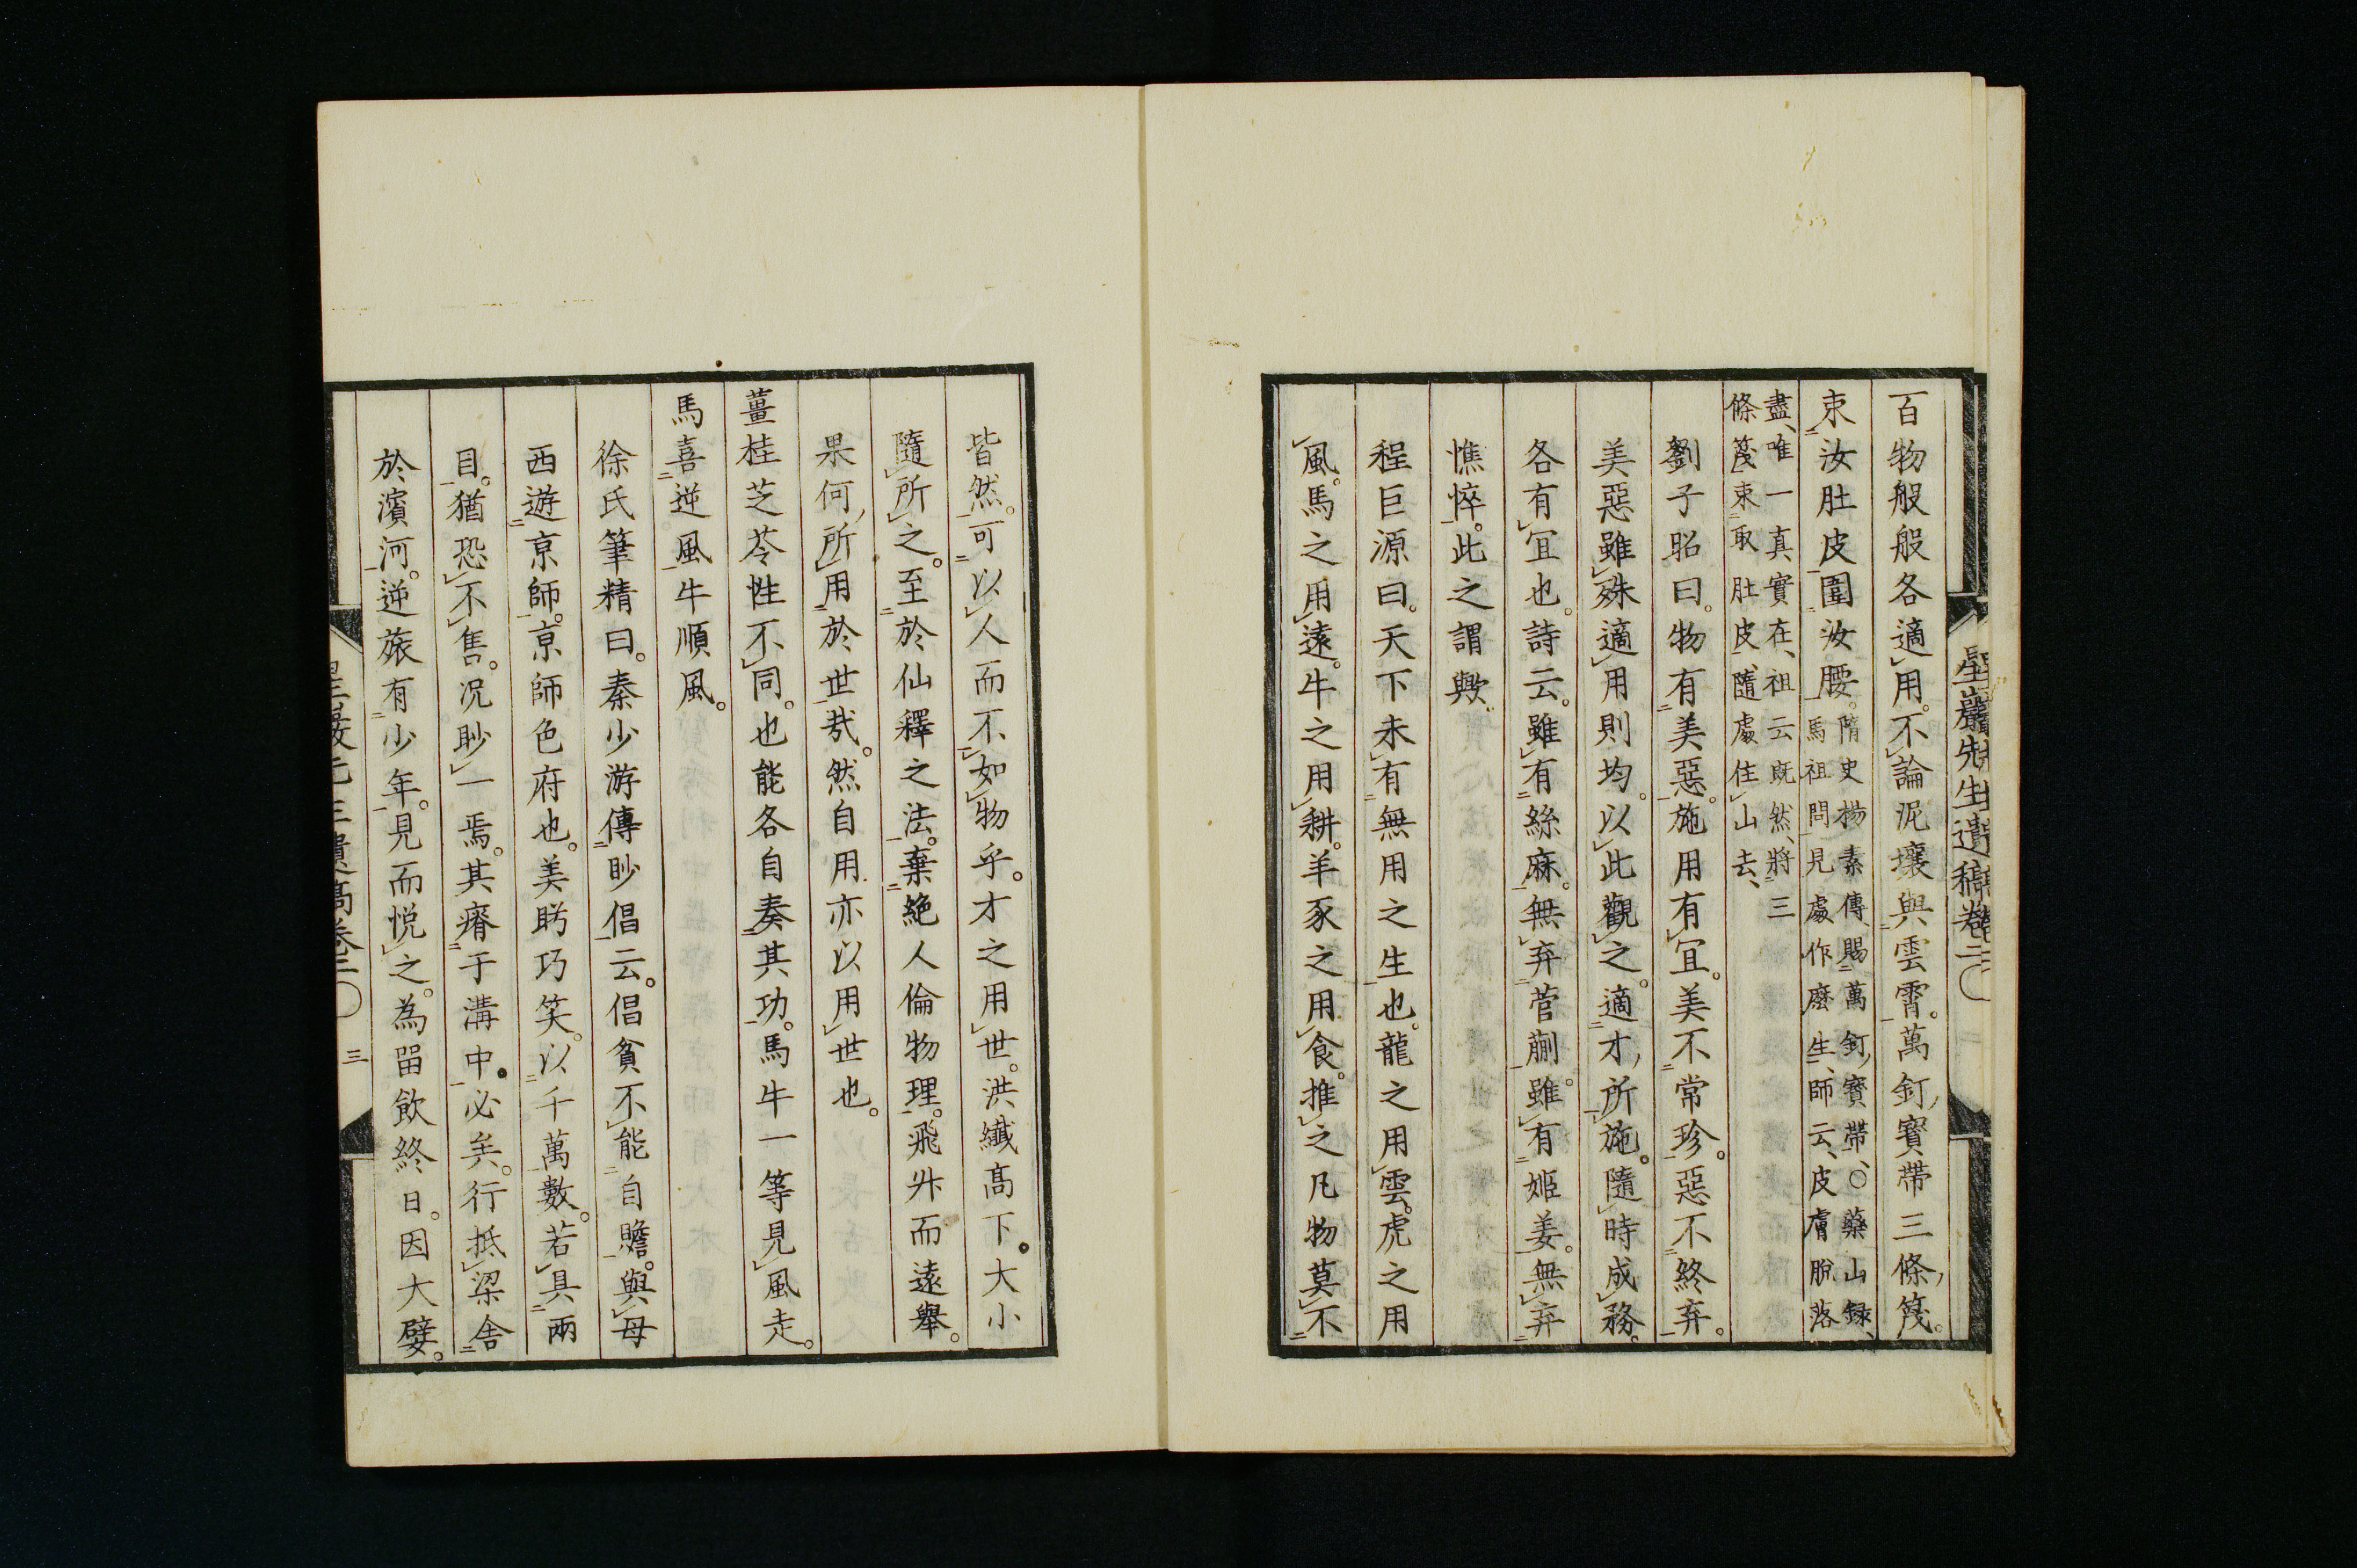 星巖先生遺稿卷二〇
百物般般各適用。不論泥壤與雲霄。萬釘寶帶三條篾。
束汝肚皮圍汝腰。隋史楊素傳、賜萬釘寶帶、〇藥山録、
馬祖問見處作麼生、師云、皮膚脫落
盡、唯一真實在、祖云既然、將三
條篾束取肚皮、隨處住山去、
劉子昭曰。物有美惡。施用有宜。美不常珍。惡不終弃。
美惡雖殊適用則均。以此觀之。適才所施。隨時成務。
各有宜也。詩云。雖有絲麻。無弃菅蒯。雖有姬姜。無弃
憔悴。此之謂歟
程巨源曰。天下未有無用之生也。龍之用雲。虎之用
風。馬之用遠。牛之用耕。羊豕之用食。推之凡物莫不
皆然。可以人而不如物乎。才之用世。洪纖高下。大小
隨所之。至於仙釋之法。棄絶人倫物理。飛升而遠舉。
果何所用於世哉。然自用亦以用世也。
薑桂芝苓性不同。也能各自奏其功。馬牛一等見風走。
馬喜逆風牛順風。
徐氏筆精曰。秦少游傳眇倡云。倡貧不能自贍。與母
西遊京師。京師色府也。美眄巧笑。以千萬數。若具兩
目。猶恐不售。況眇一焉。其瘠于溝中。必矣。行抵梁舎
於濱河。逆旅有少年。見而悅之。為畱飲終日。因大嬖。
三